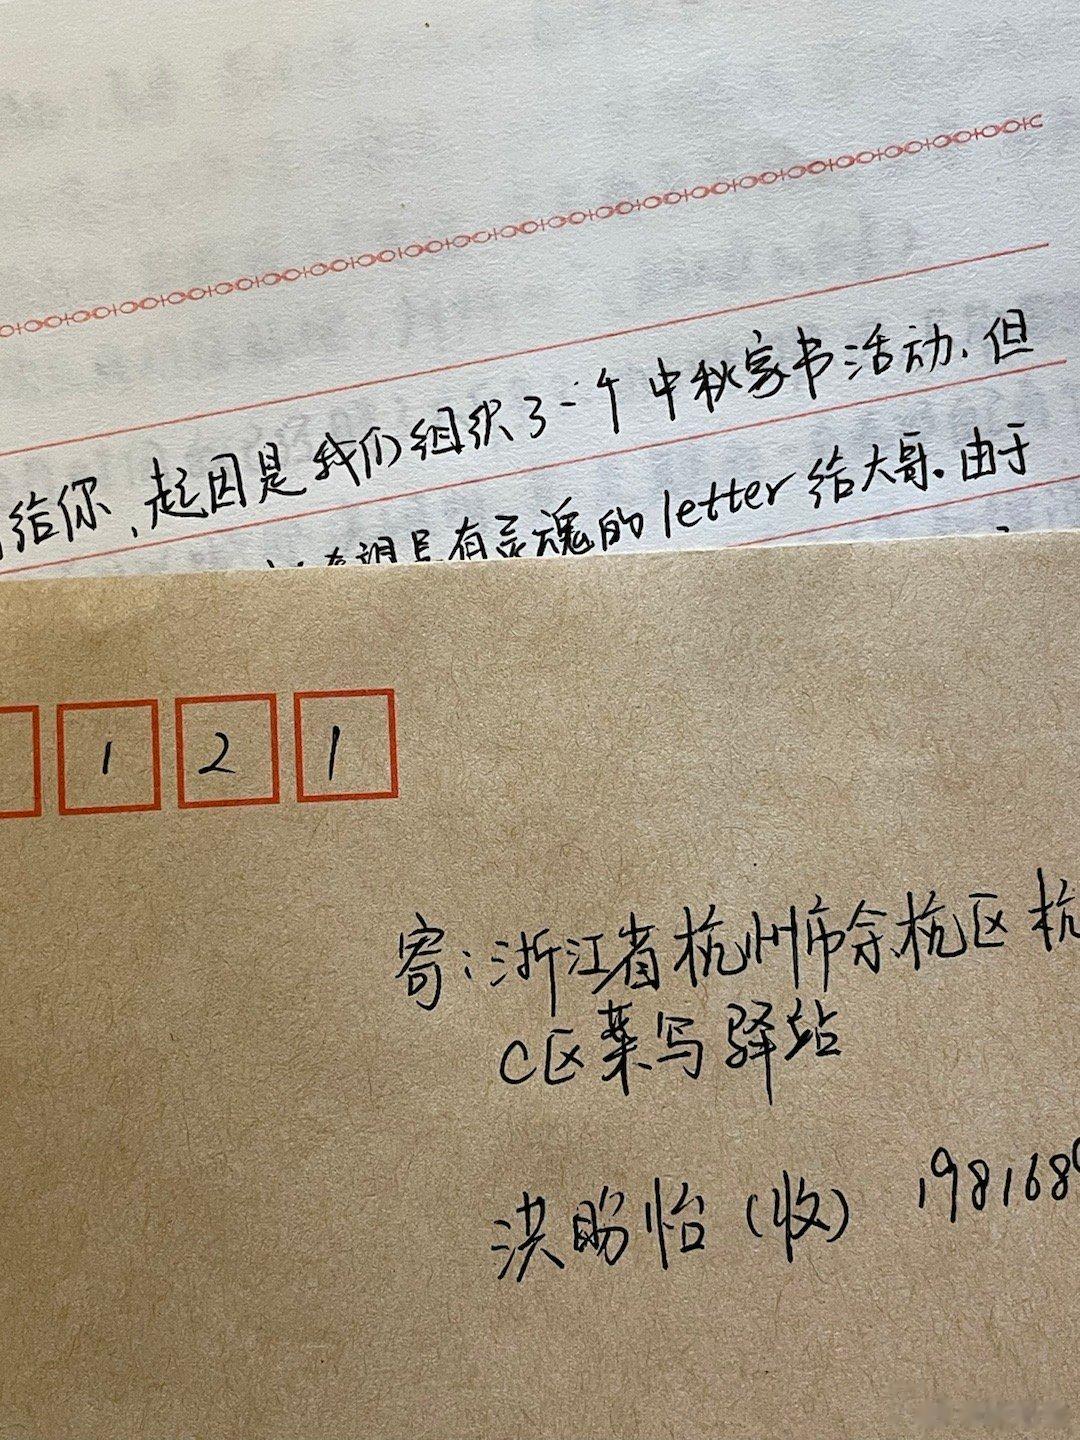 给你，起因是我们组织了一个中秋家书活动，但
有灵魂的letter给大哥。由于
1 2 1
寄：浙江省杭州市余杭区杭
C区菜鸟驿站
洪盼怡（收） 198168